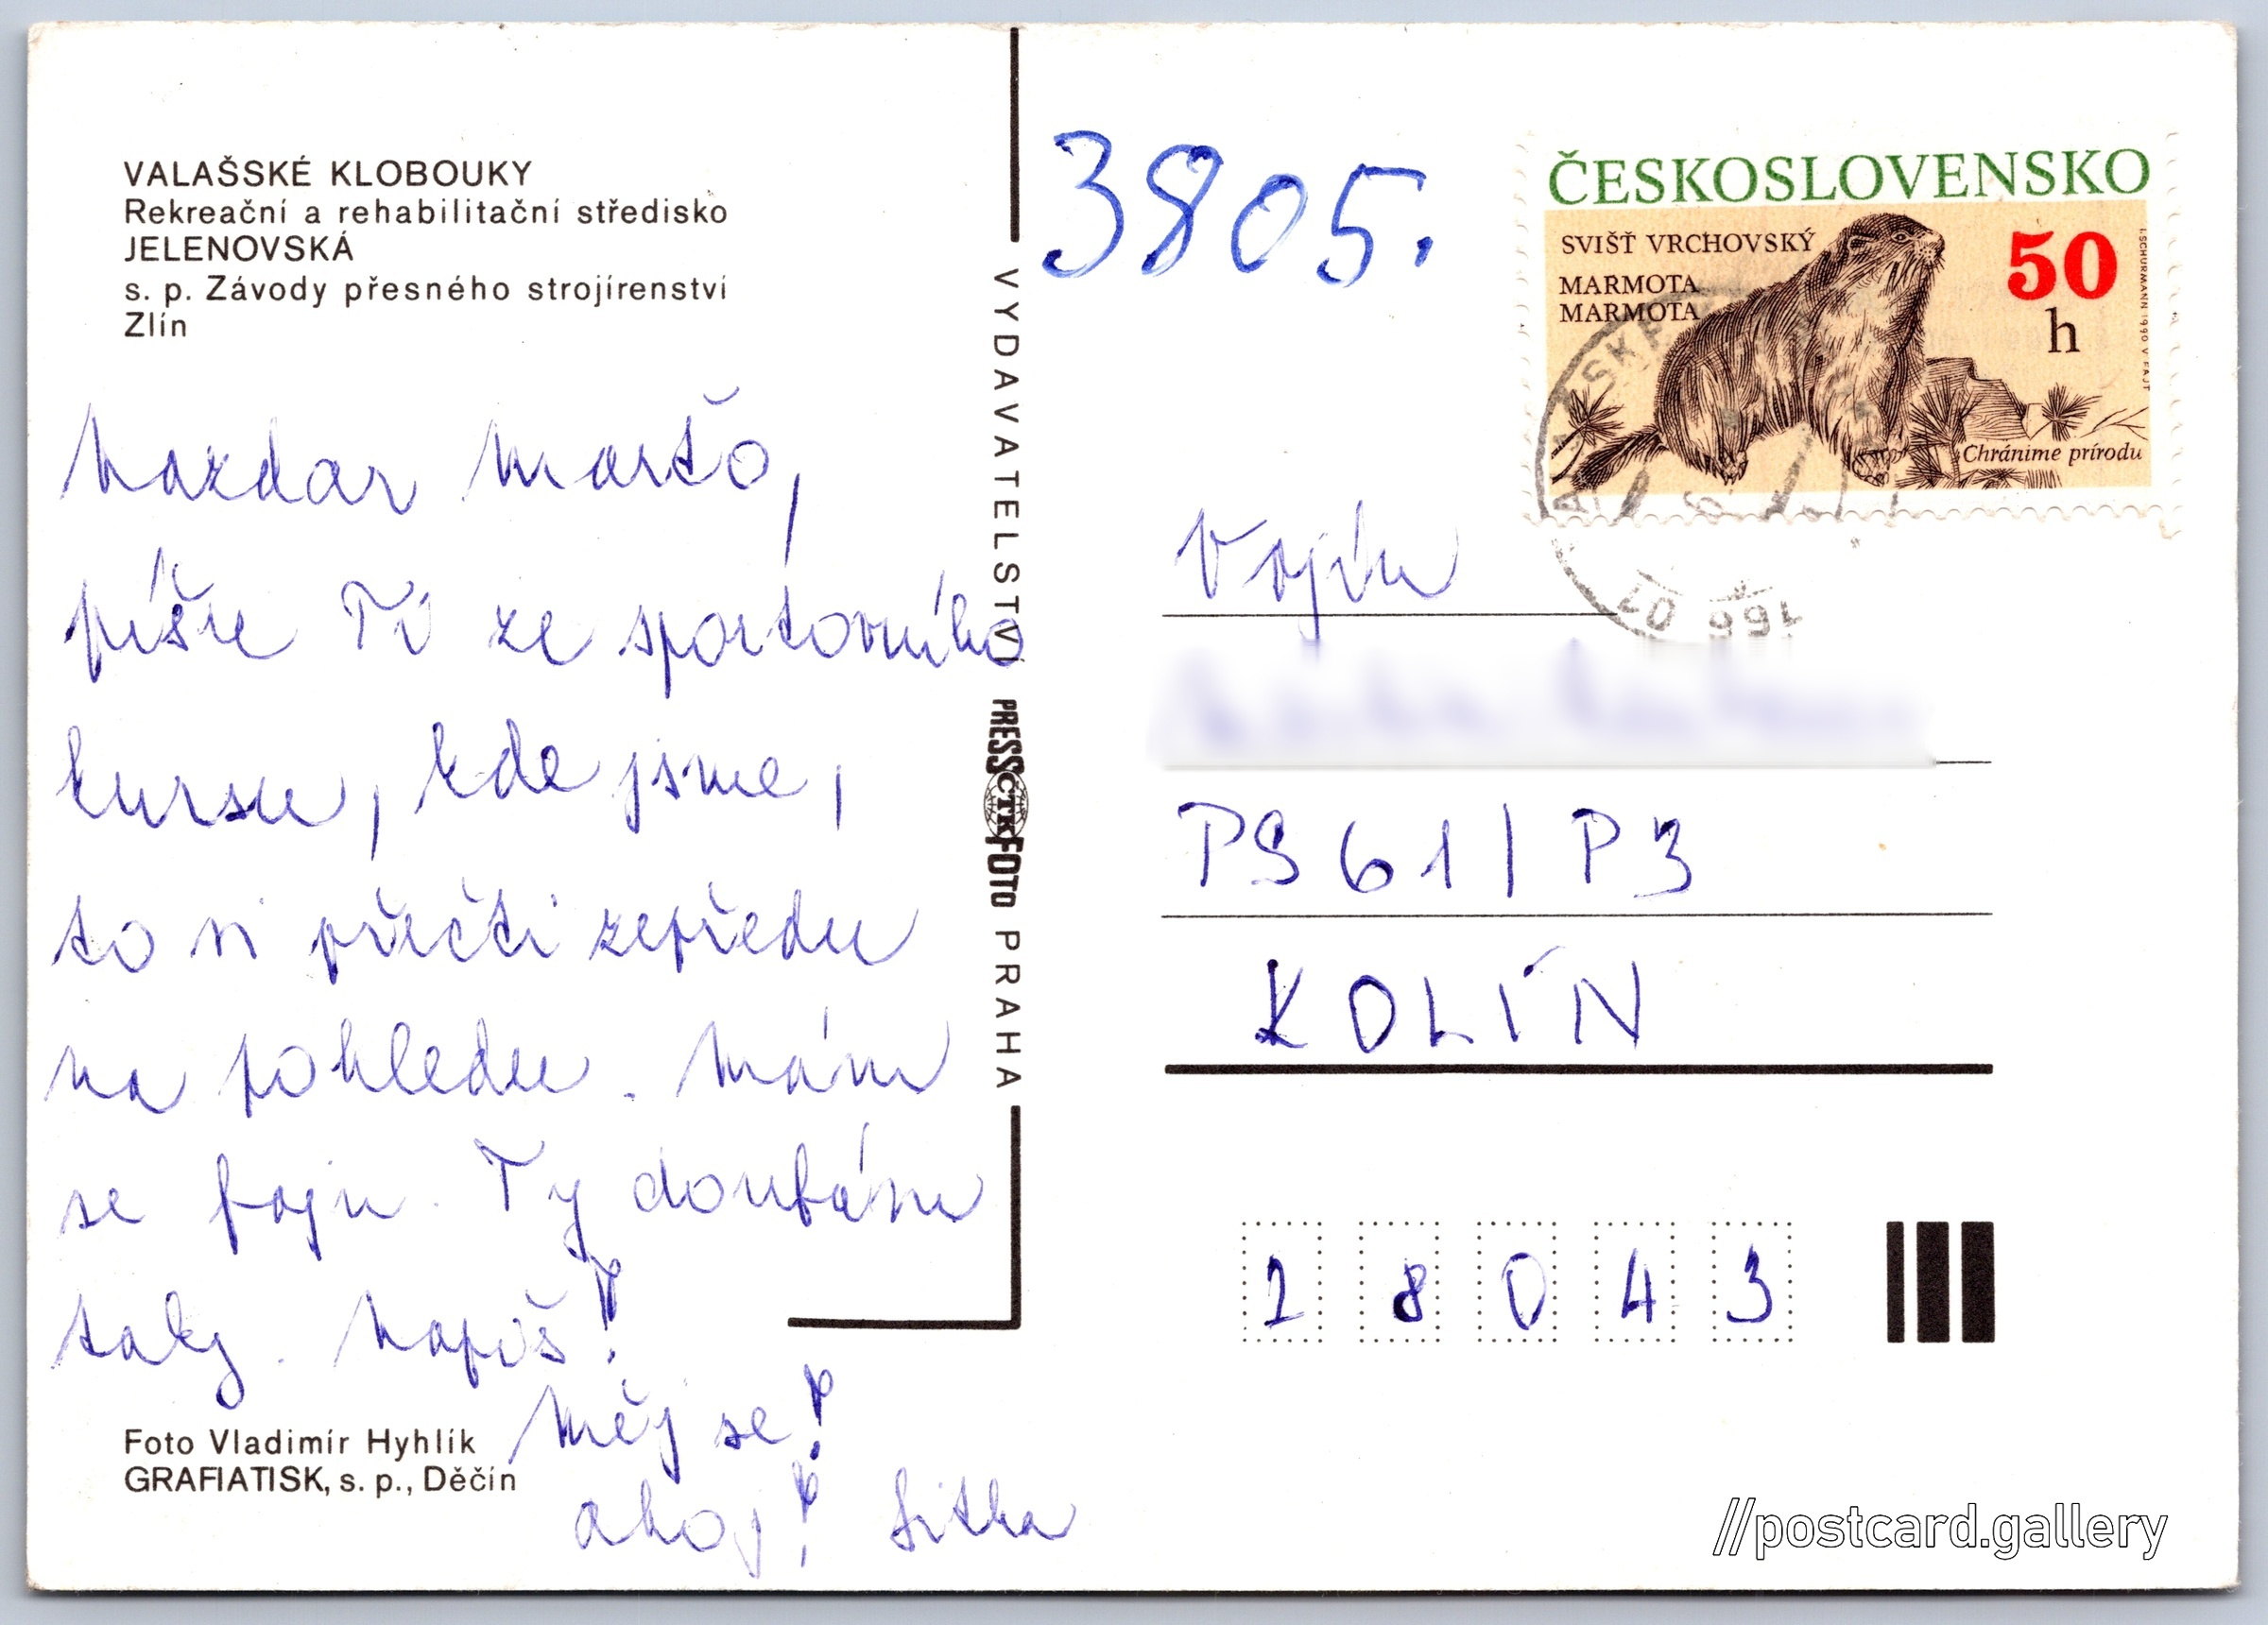 VALAŠSKÉ KLOBOUKY
Rekreační a rehabilitační středisko
JELENOVSKÁ
s. p. Závody přesného strojírenství
Zlín
Nazdar Marťo,
píšu Ti ze sportovního
kursu, kde jsme,
to si přečti zepředu
na pohledu. Mám
se fajn. Ty doufám
taky. Napiš!
Měj se!
ahoj! Jitka
Foto Vladimír Hyhlík
GRAFIATISK, s. p., Děčín
VYDAVATELSTVÍ PRESSČTKFOTO PRAHA
3805.
ČESKOSLOVENSKO
SVIŠŤ VRCHOVSKÝ
MARMOTA
MARMOTA
50
h
I. SCHURMANN 1990 V. FAJT
Chráníme prírodu
Vojín
PS 61 / P3
KOLÍN
28043
//postcard.gallery